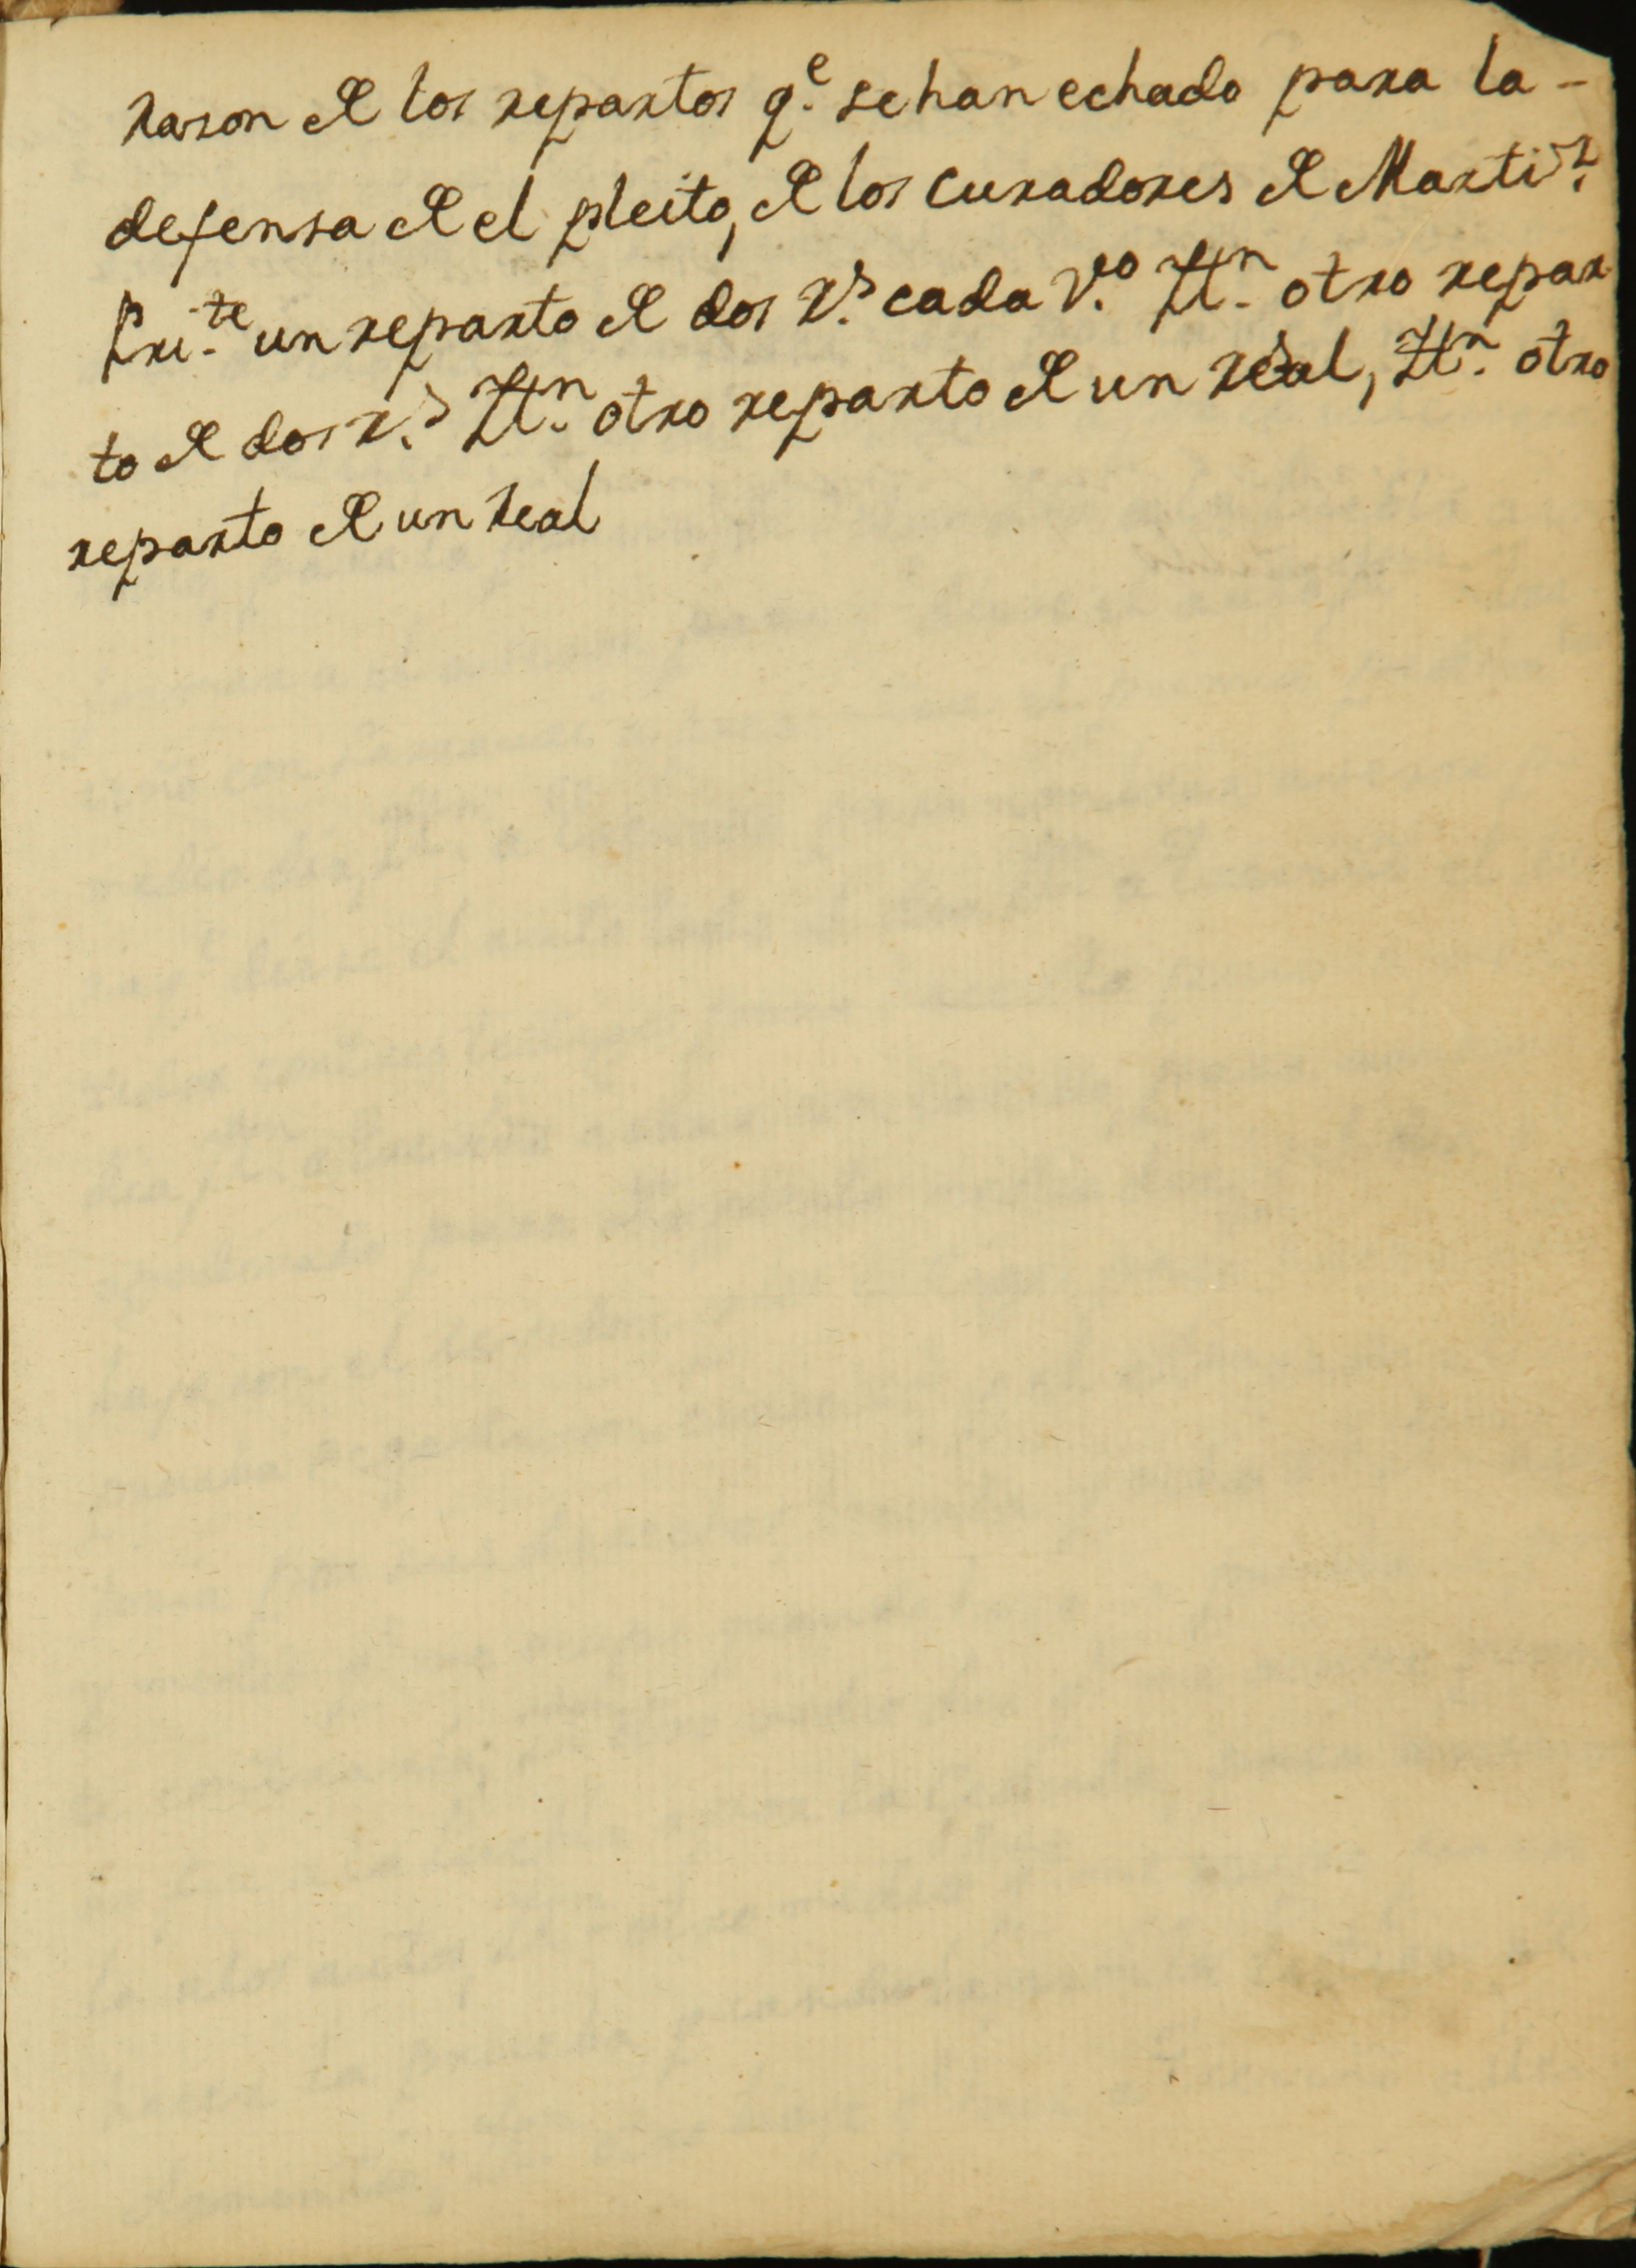 Rason de los repartos q.e se han echado para la -
defensa de el pleito, de los curadores de Marti.z
Pri.te un reparto de dos r.s cada v.o Ytt.n otro repar
to de dos r.s Ytt.n otro reparto de un real, Ytt.n otro
reparto de un Real